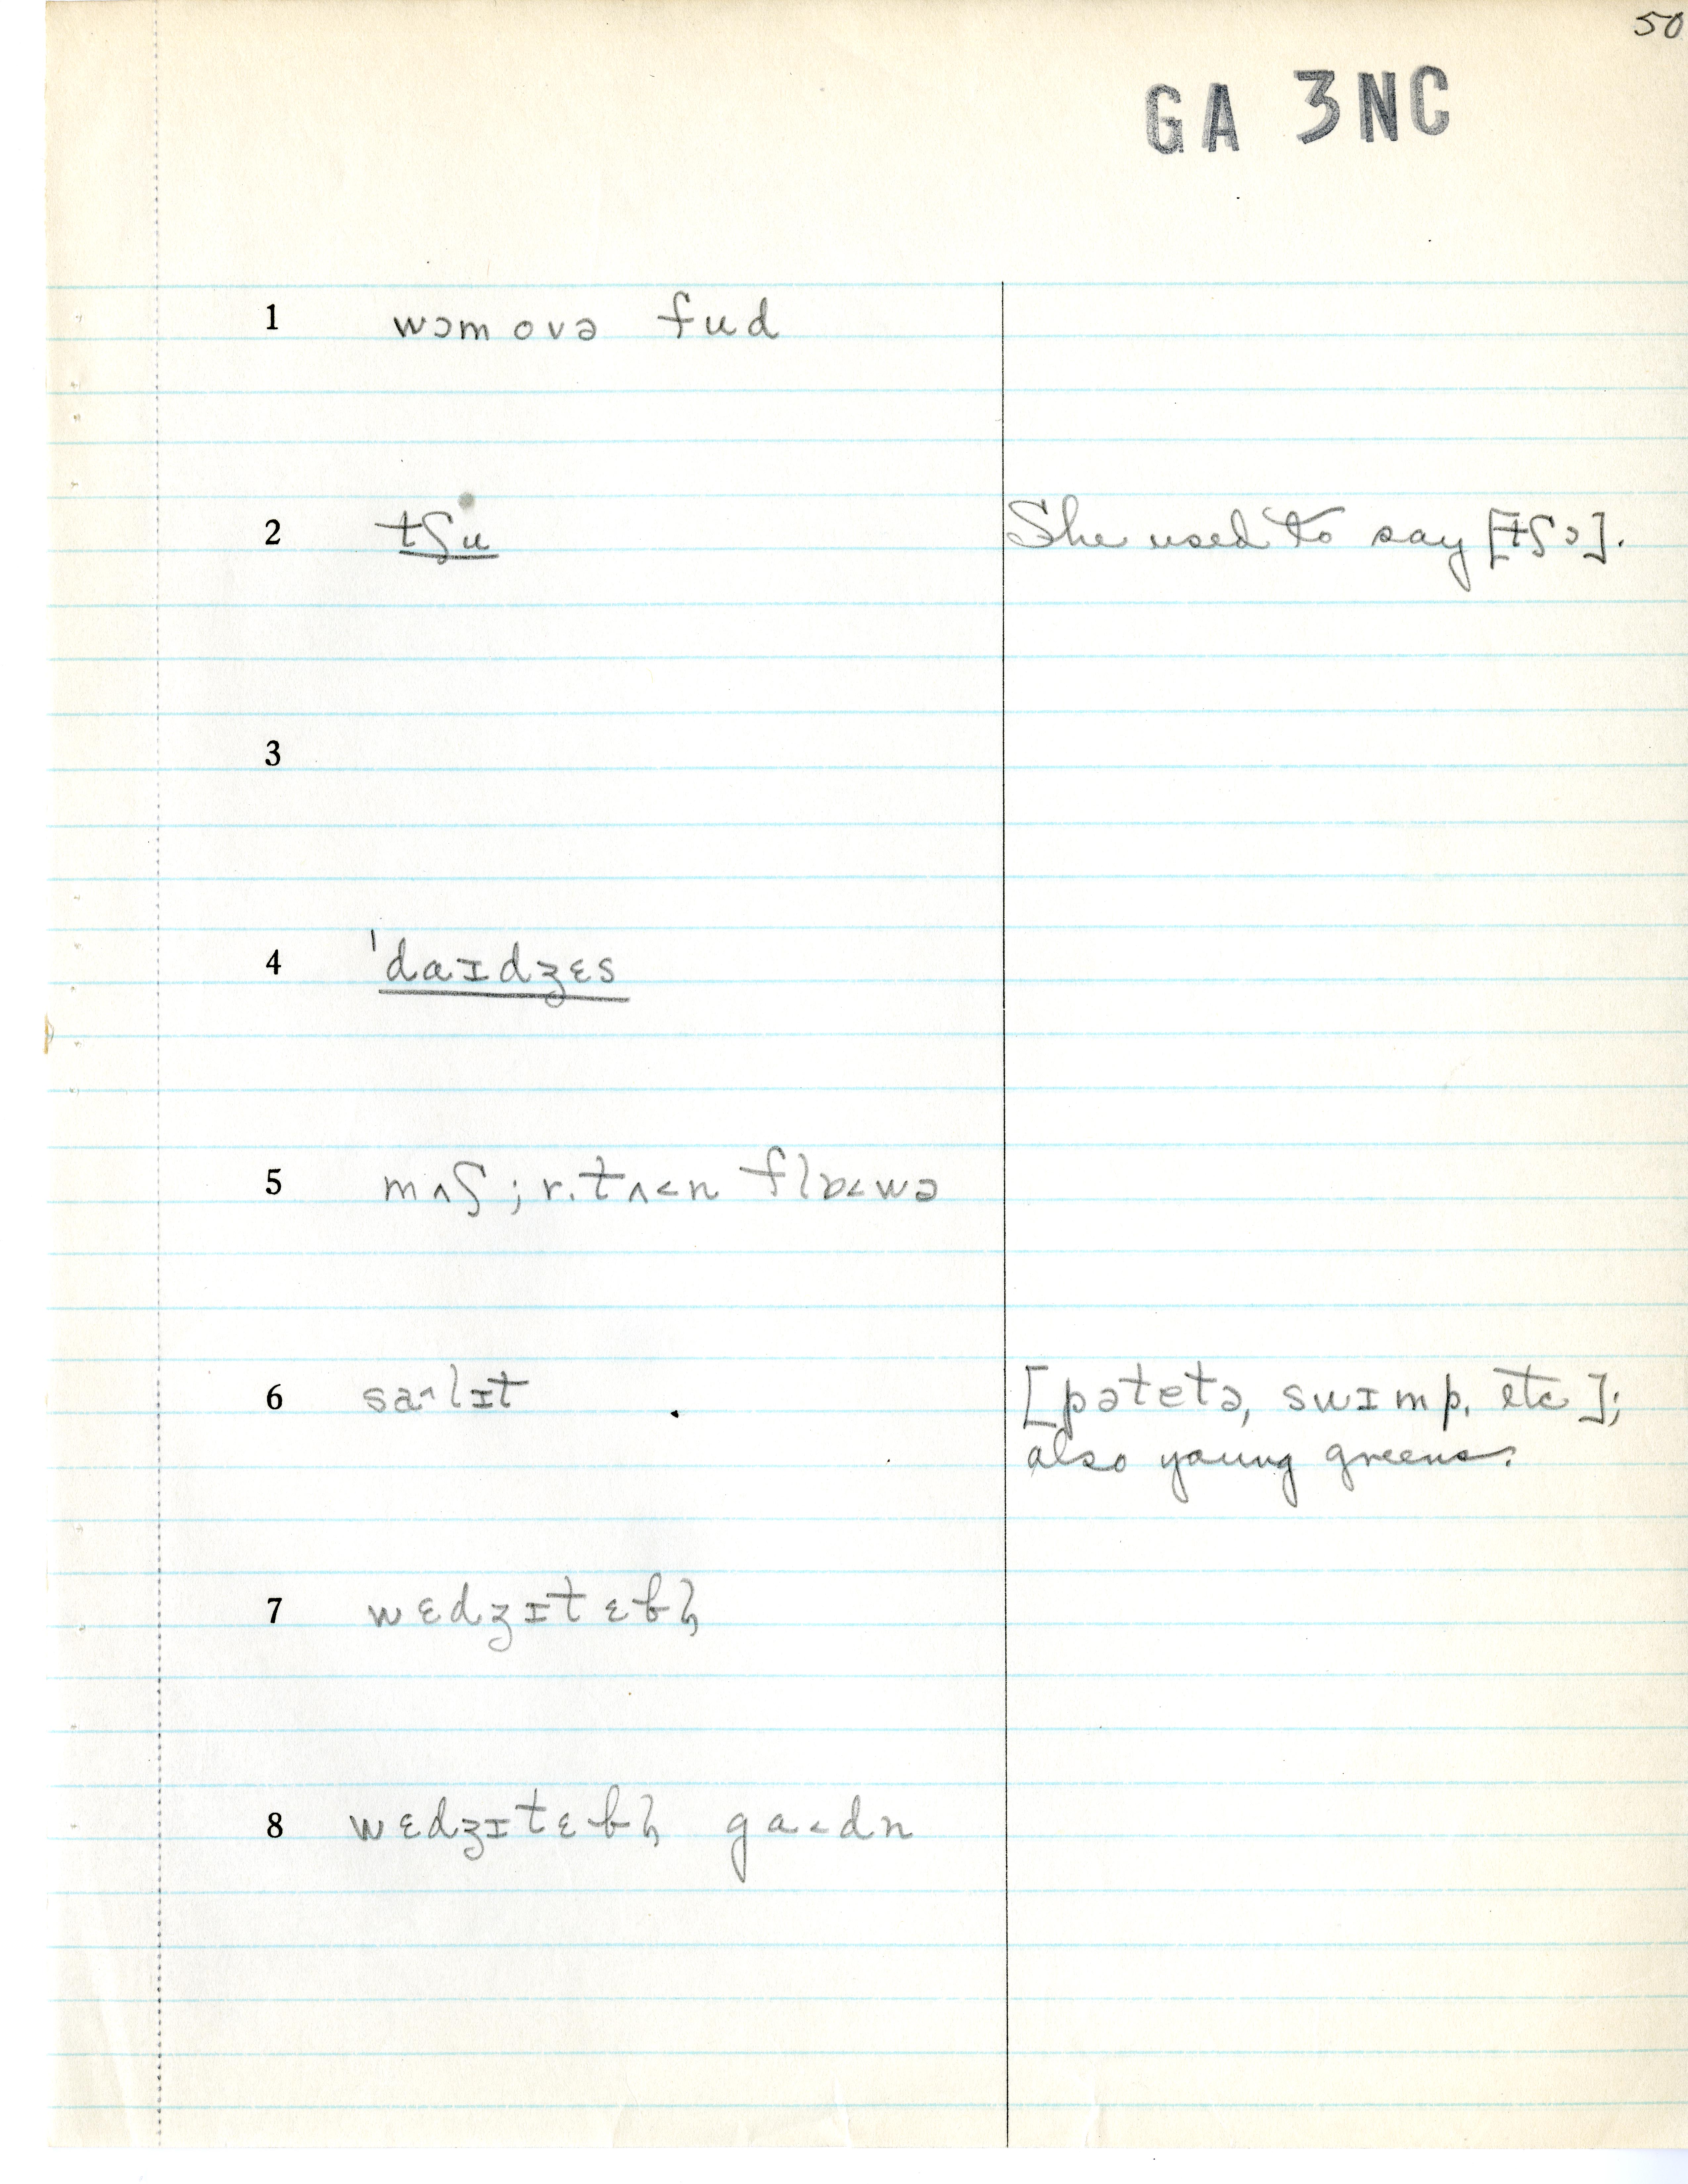 50
GA 3NC
1 wɔm ovə fud
2 tʃu She used to say [tʃɔ].
3
4 ˈdaɪdʒɛs
5 mʌʃ; r.tʌ˂n flɒ˂wə
6 sa˄lɪt [pətetə, swɪmp, etc];
also young greens.
7 wɛdʒɪtɛbl̩
8 wɛdʒɪtɛbl̩ ga˂dn